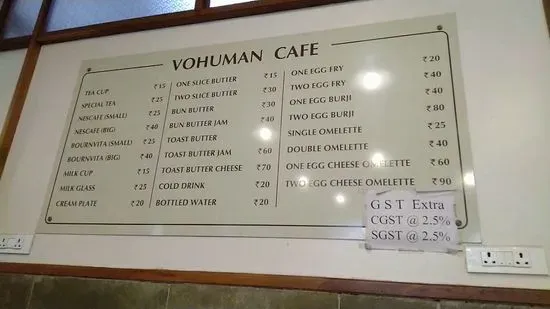 VOHUMAN CAFE
TEA CUP ₹15
SPECIAL TEA ₹25
NESCAFE (SMALL) ₹25
NESCAFE (BIG) ₹40
BOURNVITA (SMALL) ₹25
BOURNVITA (BIG) ₹40
MILK CUP ₹15
MILK GLASS ₹25
CREAM PLATE ₹20
ONE SLICE BUTTER ₹15
TWO SLICE BUTTER ₹30
BUN BUTTER ₹30
BUN BUTTER JAM ₹40
TOAST BUTTER
TOAST BUTTER JAM ₹60
TOAST BUTTER CHEESE ₹70
COLD DRINK ₹20
BOTTLED WATER ₹20
ONE EGG FRY ₹20
TWO EGG FRY ₹40
ONE EGG BURJI ₹40
TWO EGG BURJI ₹80
SINGLE OMELETTE ₹25
DOUBLE OMELETTE ₹40
ONE EGG CHEESE OMELETTE ₹60
TWO EGG CHEESE OMELETTE ₹90
G S T Extra
CGST @ 2.5%
SGST @ 2.5%